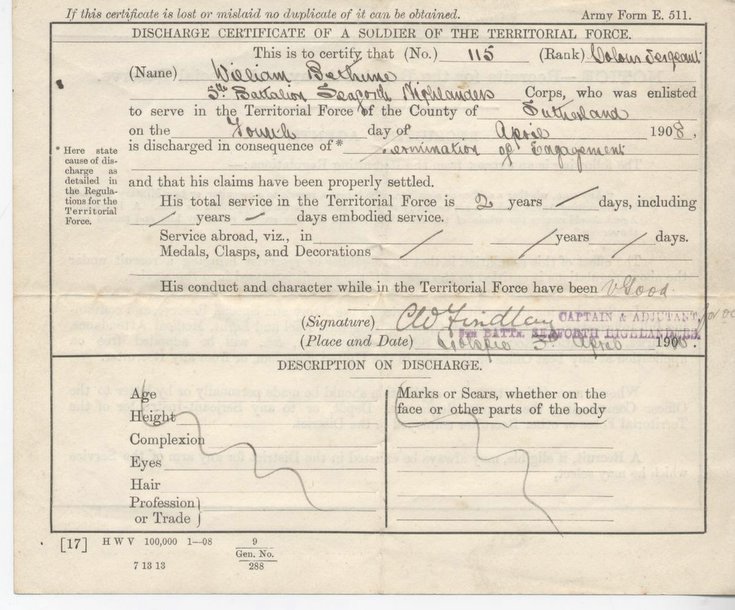 If this certificate is lost or mislaid no duplicate of it can be obtained. Army Form E. 511.
DISCHARGE CERTIFICATE OF A SOLDIER OF THE TERRITORIAL FORCE.
This is to certify that (No.) 115 (Rank) Colour Sergeant
(Name) William Bethune
5th Battalion Seaforth Highlanders Corps, who was enlisted
to serve in the Territorial Force of the County of Sutherland
on the Fourth day of April 1908,
is discharged in consequence of* Termination of Engagement
* Here state
cause of dis-
charge as
detailed in
the Regula-
tions for the
Territorial
Force.
and that his claims have been properly settled.
His total service in the Territorial Force is 2 years / days, including
/ years / days embodied service.
Service abroad, viz., in / / years / days.
Medals, Clasps, and Decorations /
His conduct and character while in the Territorial Force have been V Good.
(Signature) Findlay CAPTAIN & ADJUTANT,
5TH BATTN. SEAFORTH HIGHLANDERS.
(Place and Date) Golspie 3rd April 1910.
DESCRIPTION ON DISCHARGE.
Age
Height
Complexion
Eyes
Hair
Profession
or Trade
Marks or Scars, whether on the
face or other parts of the body
[17] H W V 100,000 1—08 9
Gen. No.
288
7 13 13